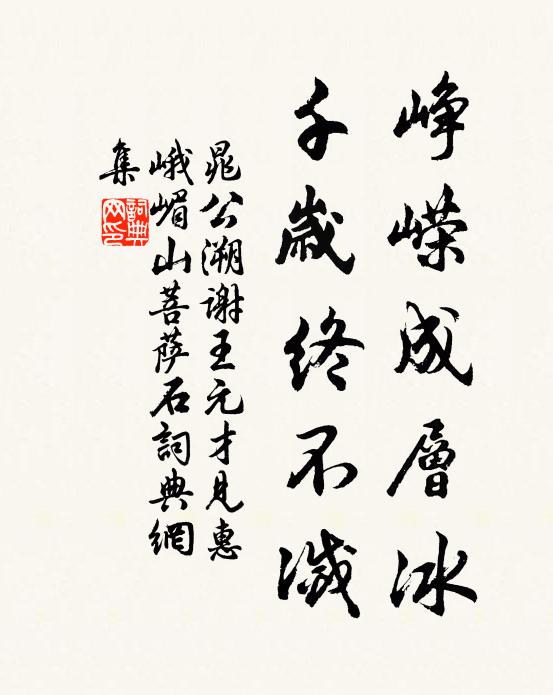 峥嵘成層冰
千歲終不滅
晁公溯谢王元才見惠
峨嵋山菩萨石詞典網
集
詞典網印